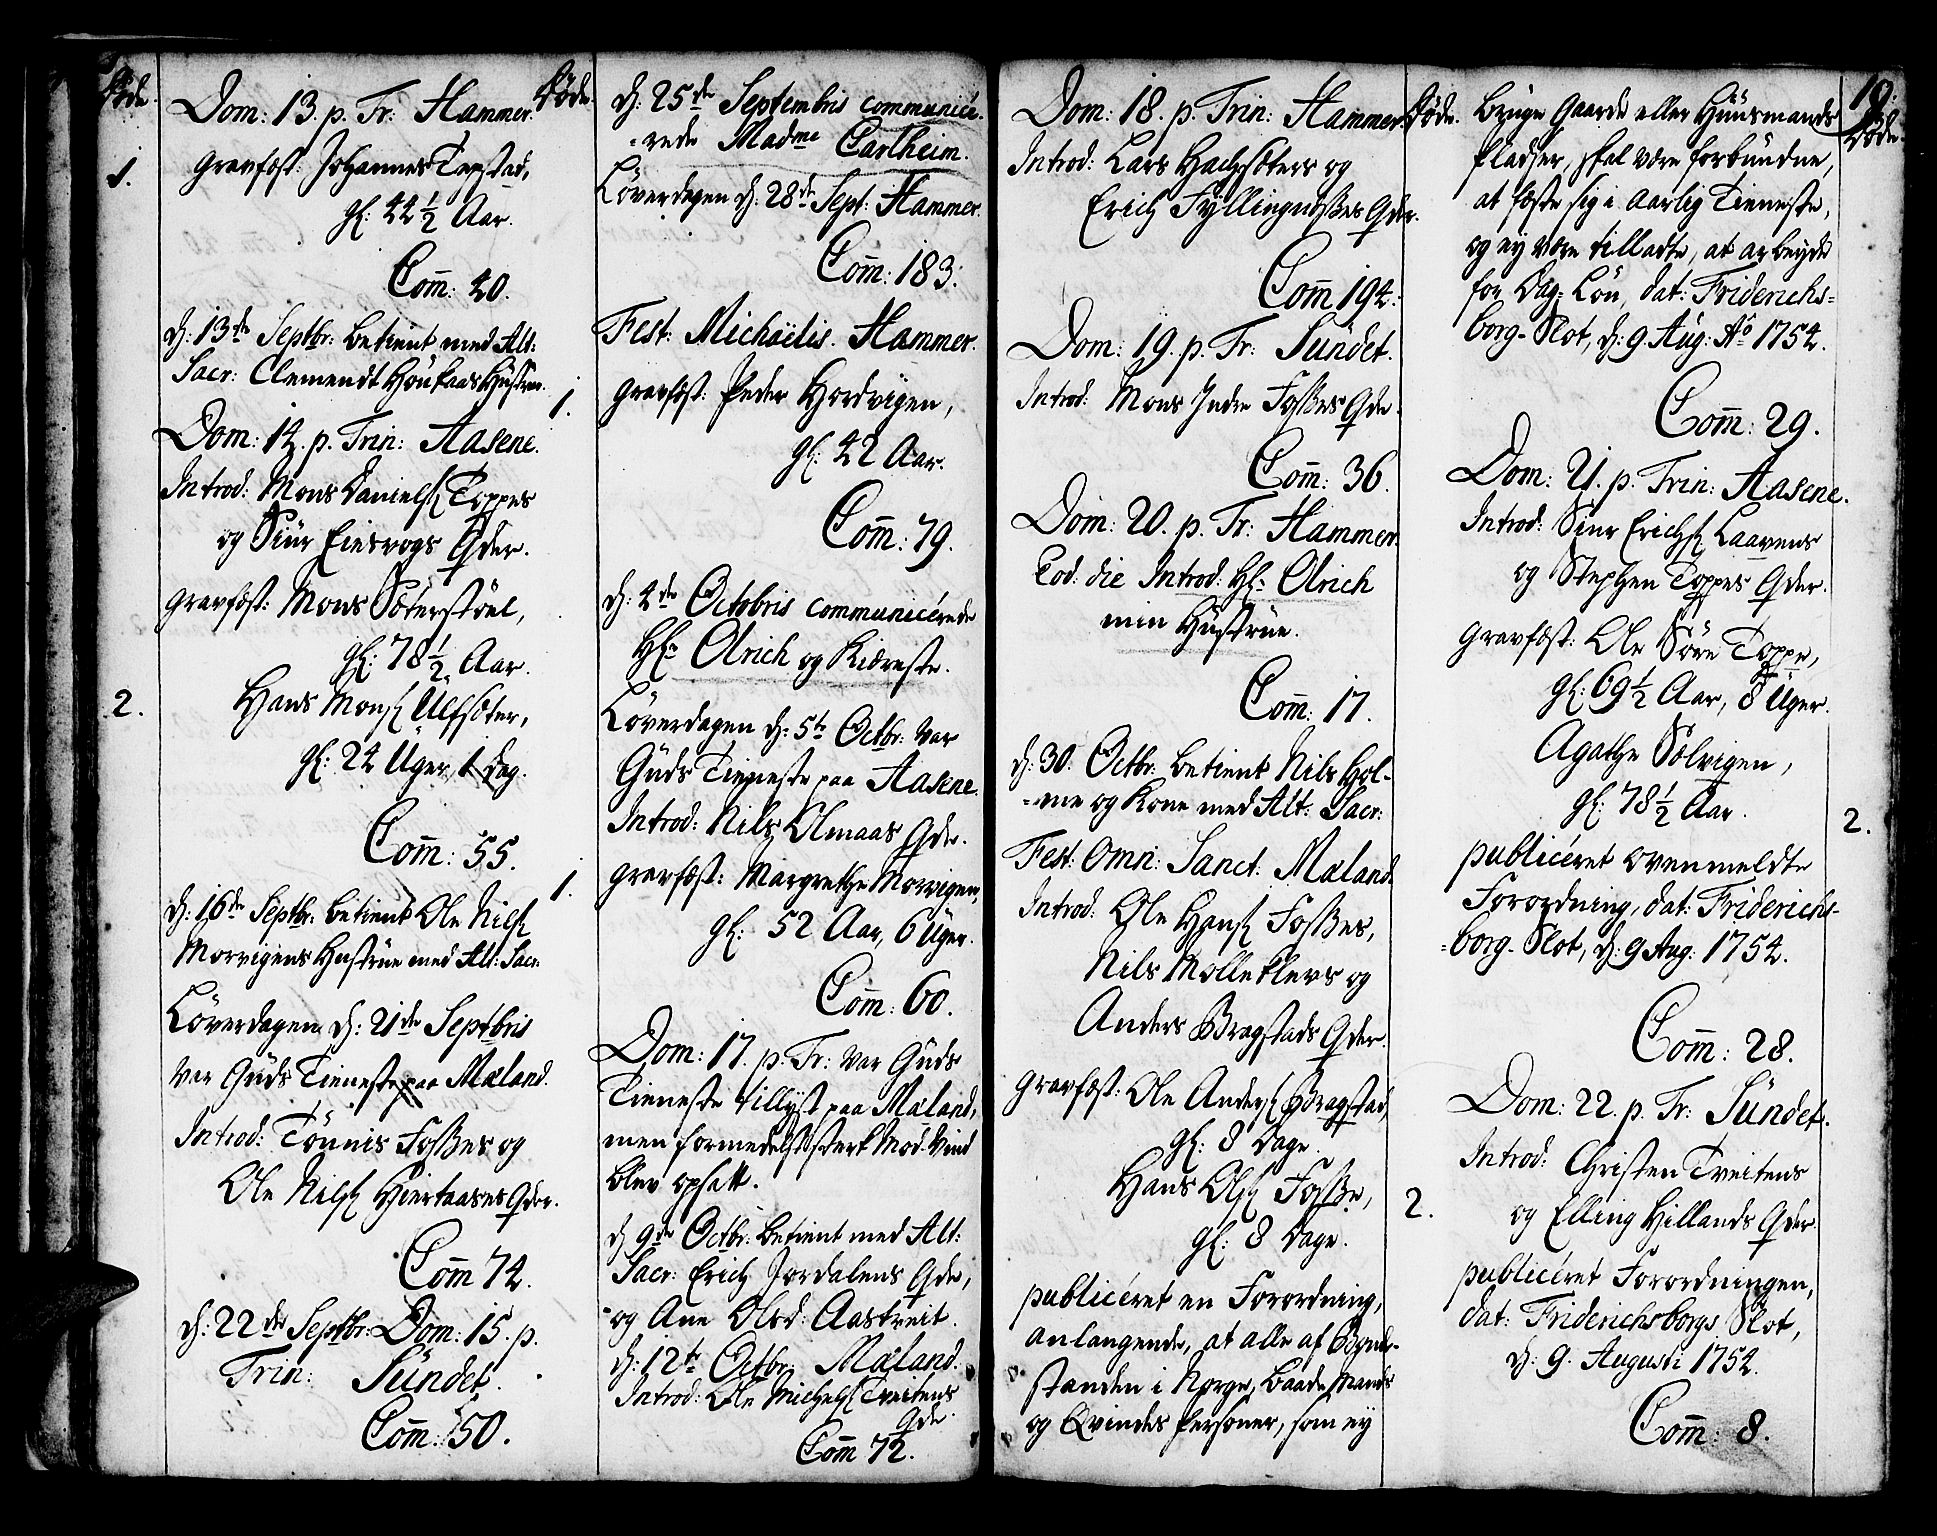 Døde.
Dom: 13. p. Tr: Hammer.
gravfæst: Johannes Tepstad,
1.
gl: 44½ Aar.
Com̄: 40.
d: 13de Septbr: betient med Alt:
Sacr: Clemendt Houkaas Hustrue.
Dom: 14. p. Trin: Aasene.
Introd: Mons Daniels: Toppes
og Siur Eiesvogs Qder.
gravfæst: Mons Sæterstøel,
gl: 78½ Aar.
Hans Mons: Ulfsæter,
2.
gl: 24 Uger, 1 Dag.
Com̄: 55.
d: 16de Septbr: betient Ole Nils:
Morvigens Hustrue med Alt: Sacr:
Løverdagen d: 21de Septbris
var Guds Tieneste paa Mæland.
Introd: Tønnis Fosses og
Ole Nils: Hiertaases Qder.
Com̄ 74.
d: 22de Septbr: Dom: 15. p.
Trin: Sundet.
Com̄: 50.
Døde.
d: 25de Septembris communicé-
-rede Madme Carlheim.
Løverdagen d: 28de Sept: Hammer.
Com̄: 183:
Fest: Michaëlis. Hammer.
gravfæst: Peder Hordvigen,
1.
gl: 42 Aar.
Com̄: 79.
d: 4de Octobris communicérede
Hr: Olrich og Kiæreste.
Løverdagen d: 5te Octbr: var
Guds Tieneste paa Aasene.
Introd: Nils Olmaas Qde.
gravfæst: Margrethe Morvigen,
1.
gl: 52 Aar, 6 Uger.
Com̄: 60.
Dom: 17. p. Tr: var Guds
Tieneste tillyst paa Mæland,
men formedelst sterk Mod-Vind
blev opsatt.
d 9de Octbr: betient med Alt:
Sacr: Erich Jordalens Qde,
og Ane Olsd: Aastveit.
d: 12te Octbr: Mæland.
Introd: Ole Michels: Tveitens
Qde.
Com̄ 72.
Dom: 18. p. Trin: Hammer.
Døde.
Introd: Lars Hachsæters og
Erich Fyllingnæsses Qder.
Com̄ 194:
Dom: 19. p. Tr: Sundet.
Introd: Mons Indre Fosses Qde.
Com̄: 36.
Dom: 20. p. Tr: Hammer.
Eod: die Introd: Hr: Olrich
min Hustrue.
Com̄: 17.
d: 30. Octbr. betient Nils Hol-
-me og Kone med Alt: Sacr:
Fest: Omn: Sanct: Mæland.
Introd: Ole Hans: Fosses,
Nils Molleklevs og
Anders Bragstads Qder.
gravfæst: Ole Anders: Bragstad,
gl: 8 Dage.
Hans Ols: Fosse,
2.
gl: 8 Dage.
publicéret en Forordning,
anlangende, at alle af Bonde-
standen i Norge, baade Mands
og Qvindes Personer, som ey
10.
Døde.
bruge Gaarde eller Huusmands
Pladser, skal være forbundne,
at fæste sig i Aarlig Tieneste,
og ey være tilladte, at arbeyde
for Dag-Løn, dat: Friderichs-
borg-Slot, d: 9 Aug: Ao 1754.
Com̄: 29.
Dom: 21. p. Trin: Aasene.
Introd: Siur Erichs: Laavens
og Stephen Toppes Qder.
gravfæst: Ole Søre Toppe,
gl: 69½ Aar, 8 Uger.
Agathe Sølvigen,
gl: 78½ Aar.
2.
publicéret ovenmeldte
Forordning, dat: Friderichs-
-borg-Slot, d: 9 Aug: 1754.
Com̄: 28.
Dom: 22. p. Tr: Sundet.
Introd: Christen Tveitens
og Elling Hillands Qder.
publicéret Forordningen,
dat: Friderichsborgs Slot,
d: 9. Augusti 1754.
Com̄: 8.